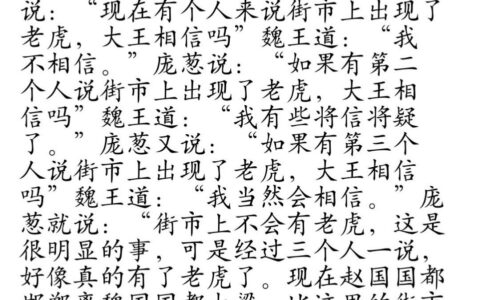 说：“现在有个人来说街市上出现了
老虎，大王相信吗”魏王道：“我
不相信。”庞葱说：“如果有第二
个人说街市上出现了老虎，大王相
信吗”魏王道：“我有些将信将疑
了。”庞葱又说：“如果有第三个
人说街市上出现了老虎，大王相信
吗”魏王道：“我当然会相信。”庞
葱就说：“街市上不会有老虎，这是
很明显的事，可是经过三个人一说，
好像真的有了老虎了。现在赵国国都
邯郸离魏国国都大梁，比这里的街市